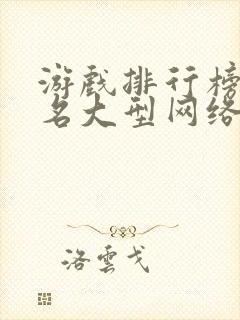 游戏排行榜
名大型网络
洛雲戈